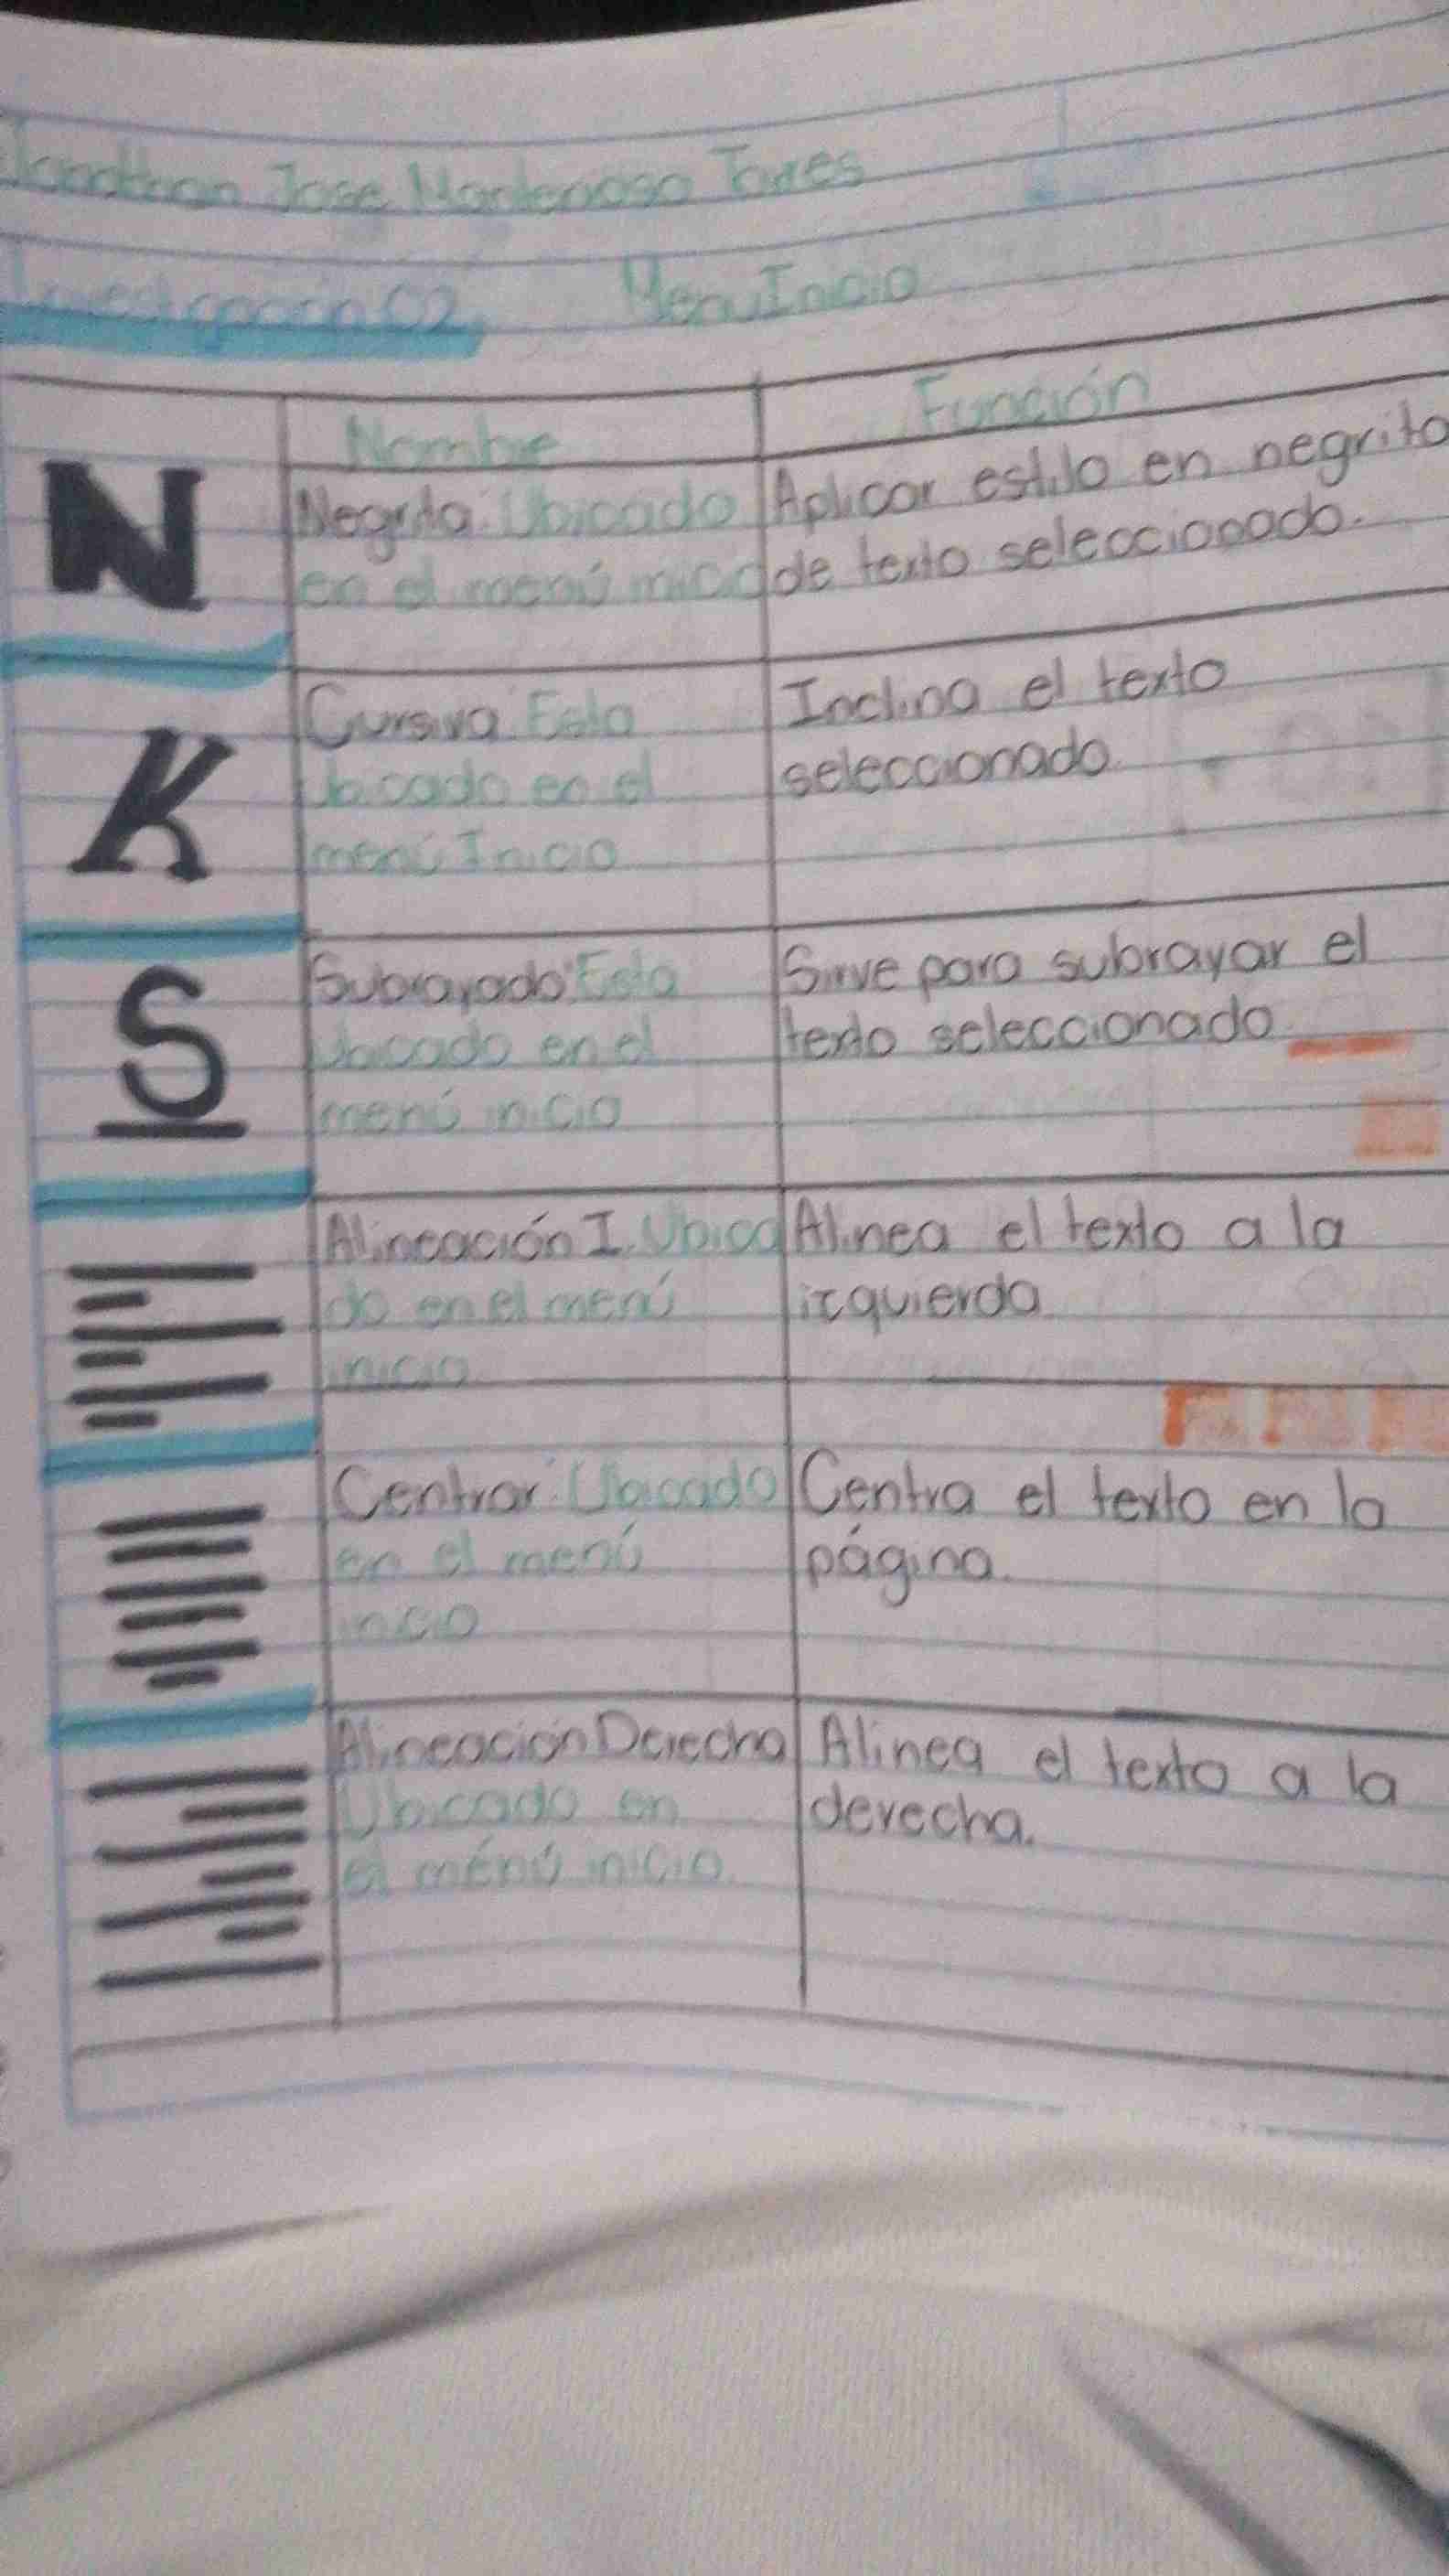 Jose Torres
Investigación 02 Menu Inicio
Nombre Función
N
Negrita: Ubicado
en el menú inicio
Aplicar estilo en negrita
de texto seleccionado.
K
Cursiva: Esta
Ubicado en el
menú Inicio
Inclina el texto
seleccionado.
S
Subrayado: Esta
Ubicado en el
menú inicio
Sirve para subrayar el
texto seleccionado
Alineación I. Ubica
do en el menú
inicio
Alinea el texto a la
izquierda
Centrar: Ubicado
en el menú
inicio
Centra el texto en la
página.
Alineación Derecha
Ubicado en
el ménú inicio.
Alinea el texto a la
derecha.